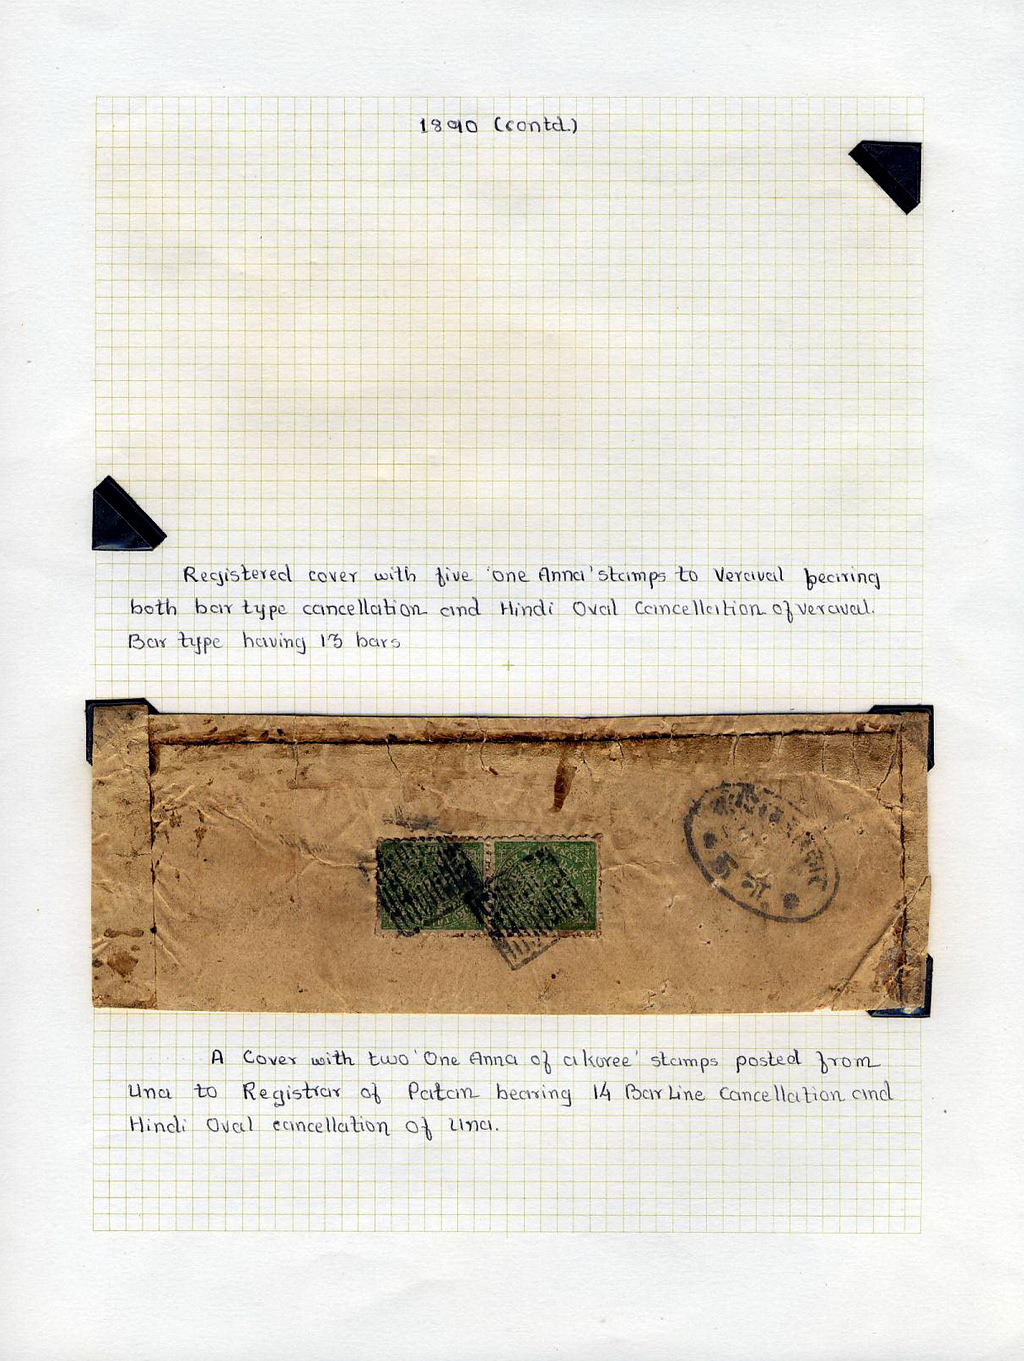 1890 (contd.)
Registered cover with five 'one Anna' stamps to Veraval bearing
both bar type cancellation and Hindi Oval Cancellation of veraval.
Bar type having 13 bars
A Cover with two 'One Anna of a koree' stamps posted from
Una to Registrar of Patan bearing 14 Bar Line Cancellation and
Hindi Oval cancellation of Una.